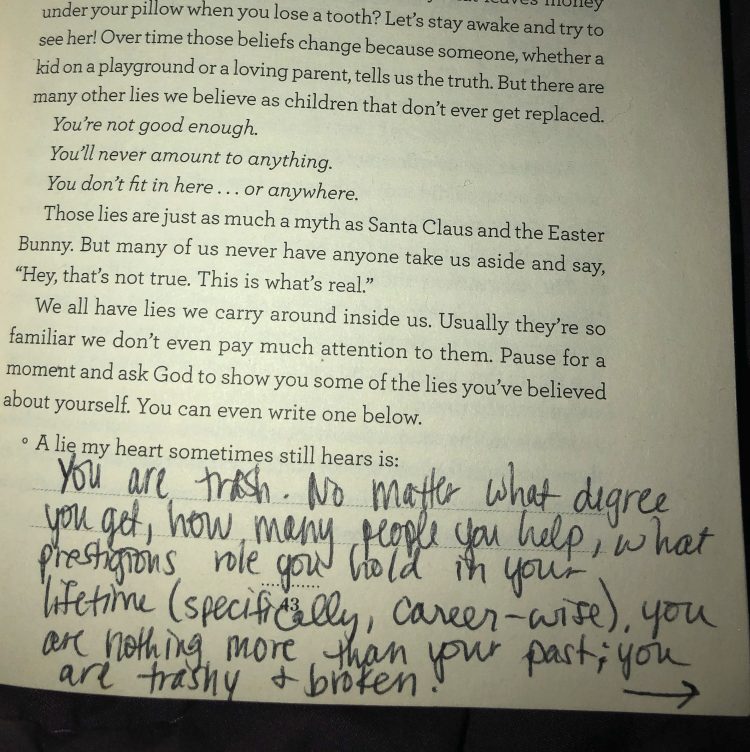 leaves money
under your pillow when you lose a tooth? Let's stay awake and try to
see her! Over time those beliefs change because someone, whether a
kid on a playground or a loving parent, tells us the truth. But there are
many other lies we believe as children that don't ever get replaced.
You're not good enough.
You'll never amount to anything.
You don't fit in here . . . or anywhere.
Those lies are just as much a myth as Santa Claus and the Easter
Bunny. But many of us never have anyone take us aside and say,
"Hey, that's not true. This is what's real."
We all have lies we carry around inside us. Usually they're so
familiar we don't even pay much attention to them. Pause for a
moment and ask God to show you some of the lies you've believed
about yourself. You can even write one below.
° A lie my heart sometimes still hears is:
You are trash. No matter what degree
you get, how many people you help, what
prestigious role you hold in your
lifetime (specifically, career-wise), you
43
are nothing more than your past; you
are trashy & broken.